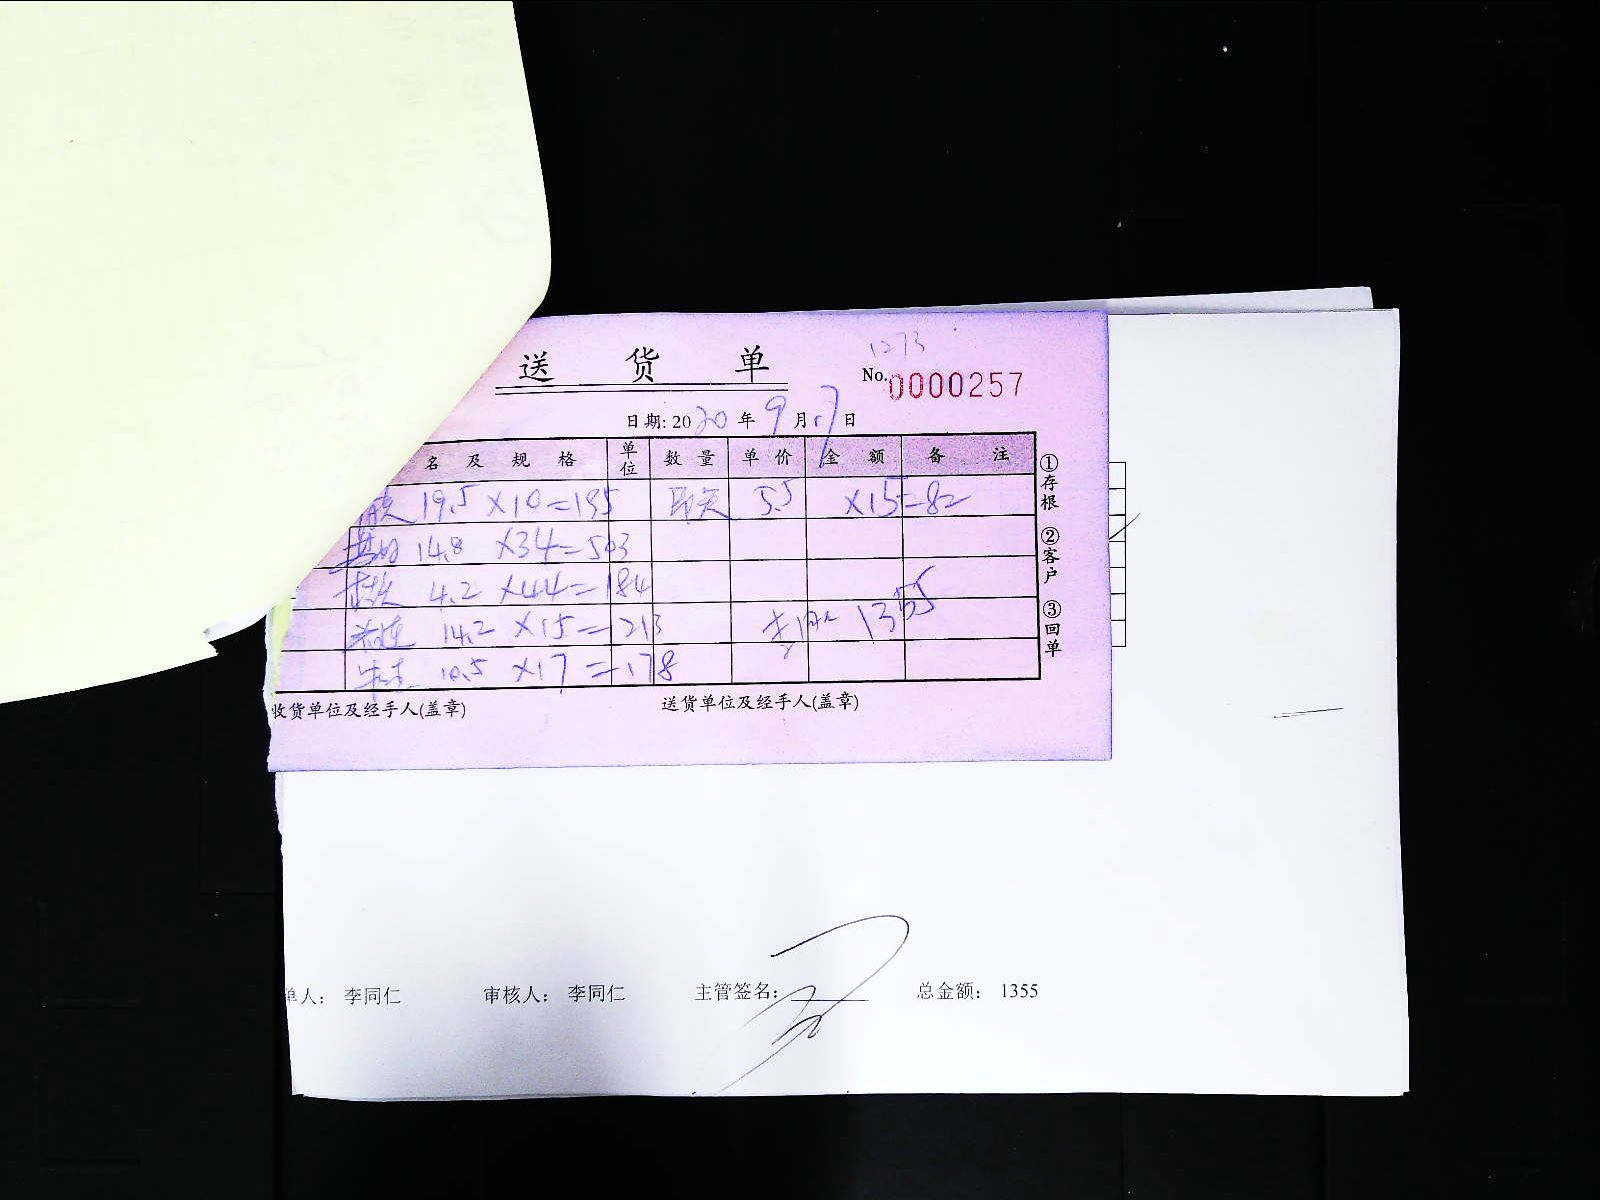 送 货 单
1273
No. 0000257
日期: 2020 年 9 月 17 日
名 及 规 格 单位 数 量 单 价 金 额 备 注
19.5 ×10=195 5.5 ×15=82
14.8 ×34=503
4.2 ×44=184
14.2 ×15=213 1355
10.5 ×17=178
①存根 ②客户 ③回单
收货单位及经手人(盖章) 送货单位及经手人(盖章)
单人: 李同仁 审核人: 李同仁 主管签名: 总金额: 1355